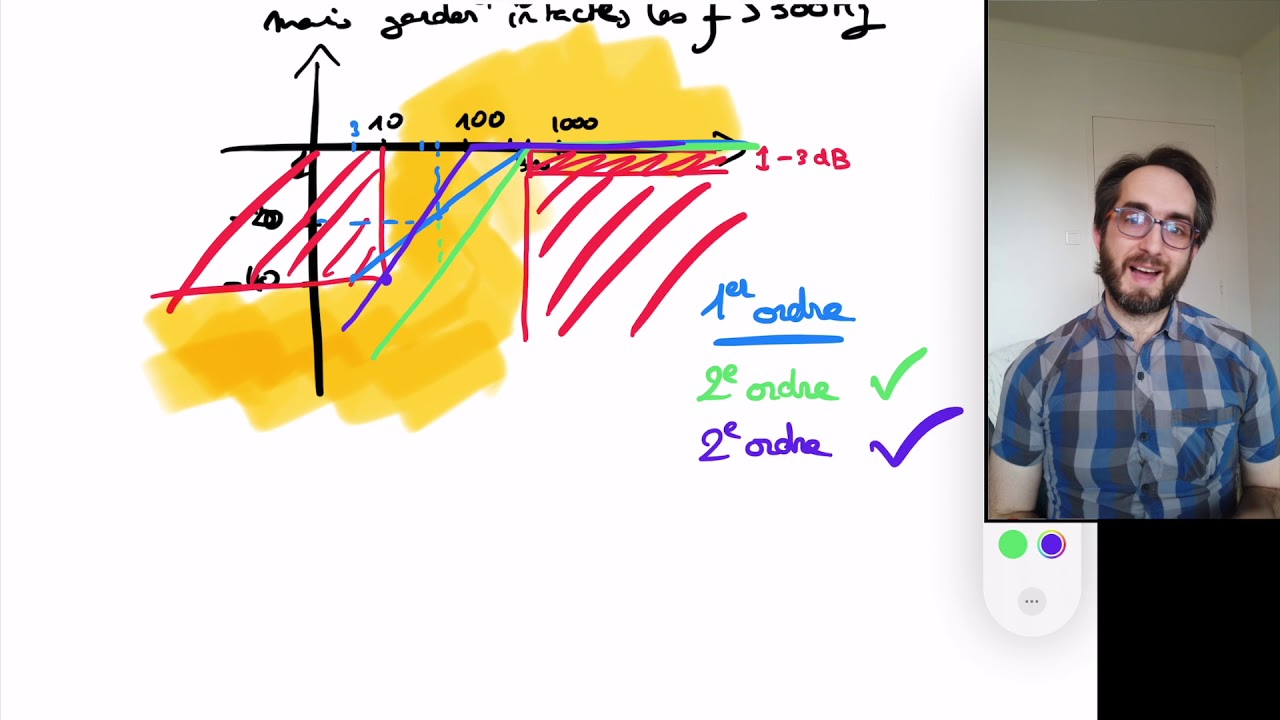 mais garder intactes les f > 500 Hz
3 10 100 1000
-20
-40
-3 dB
1er ordre
2e ordre ✓
2e ordre ✓